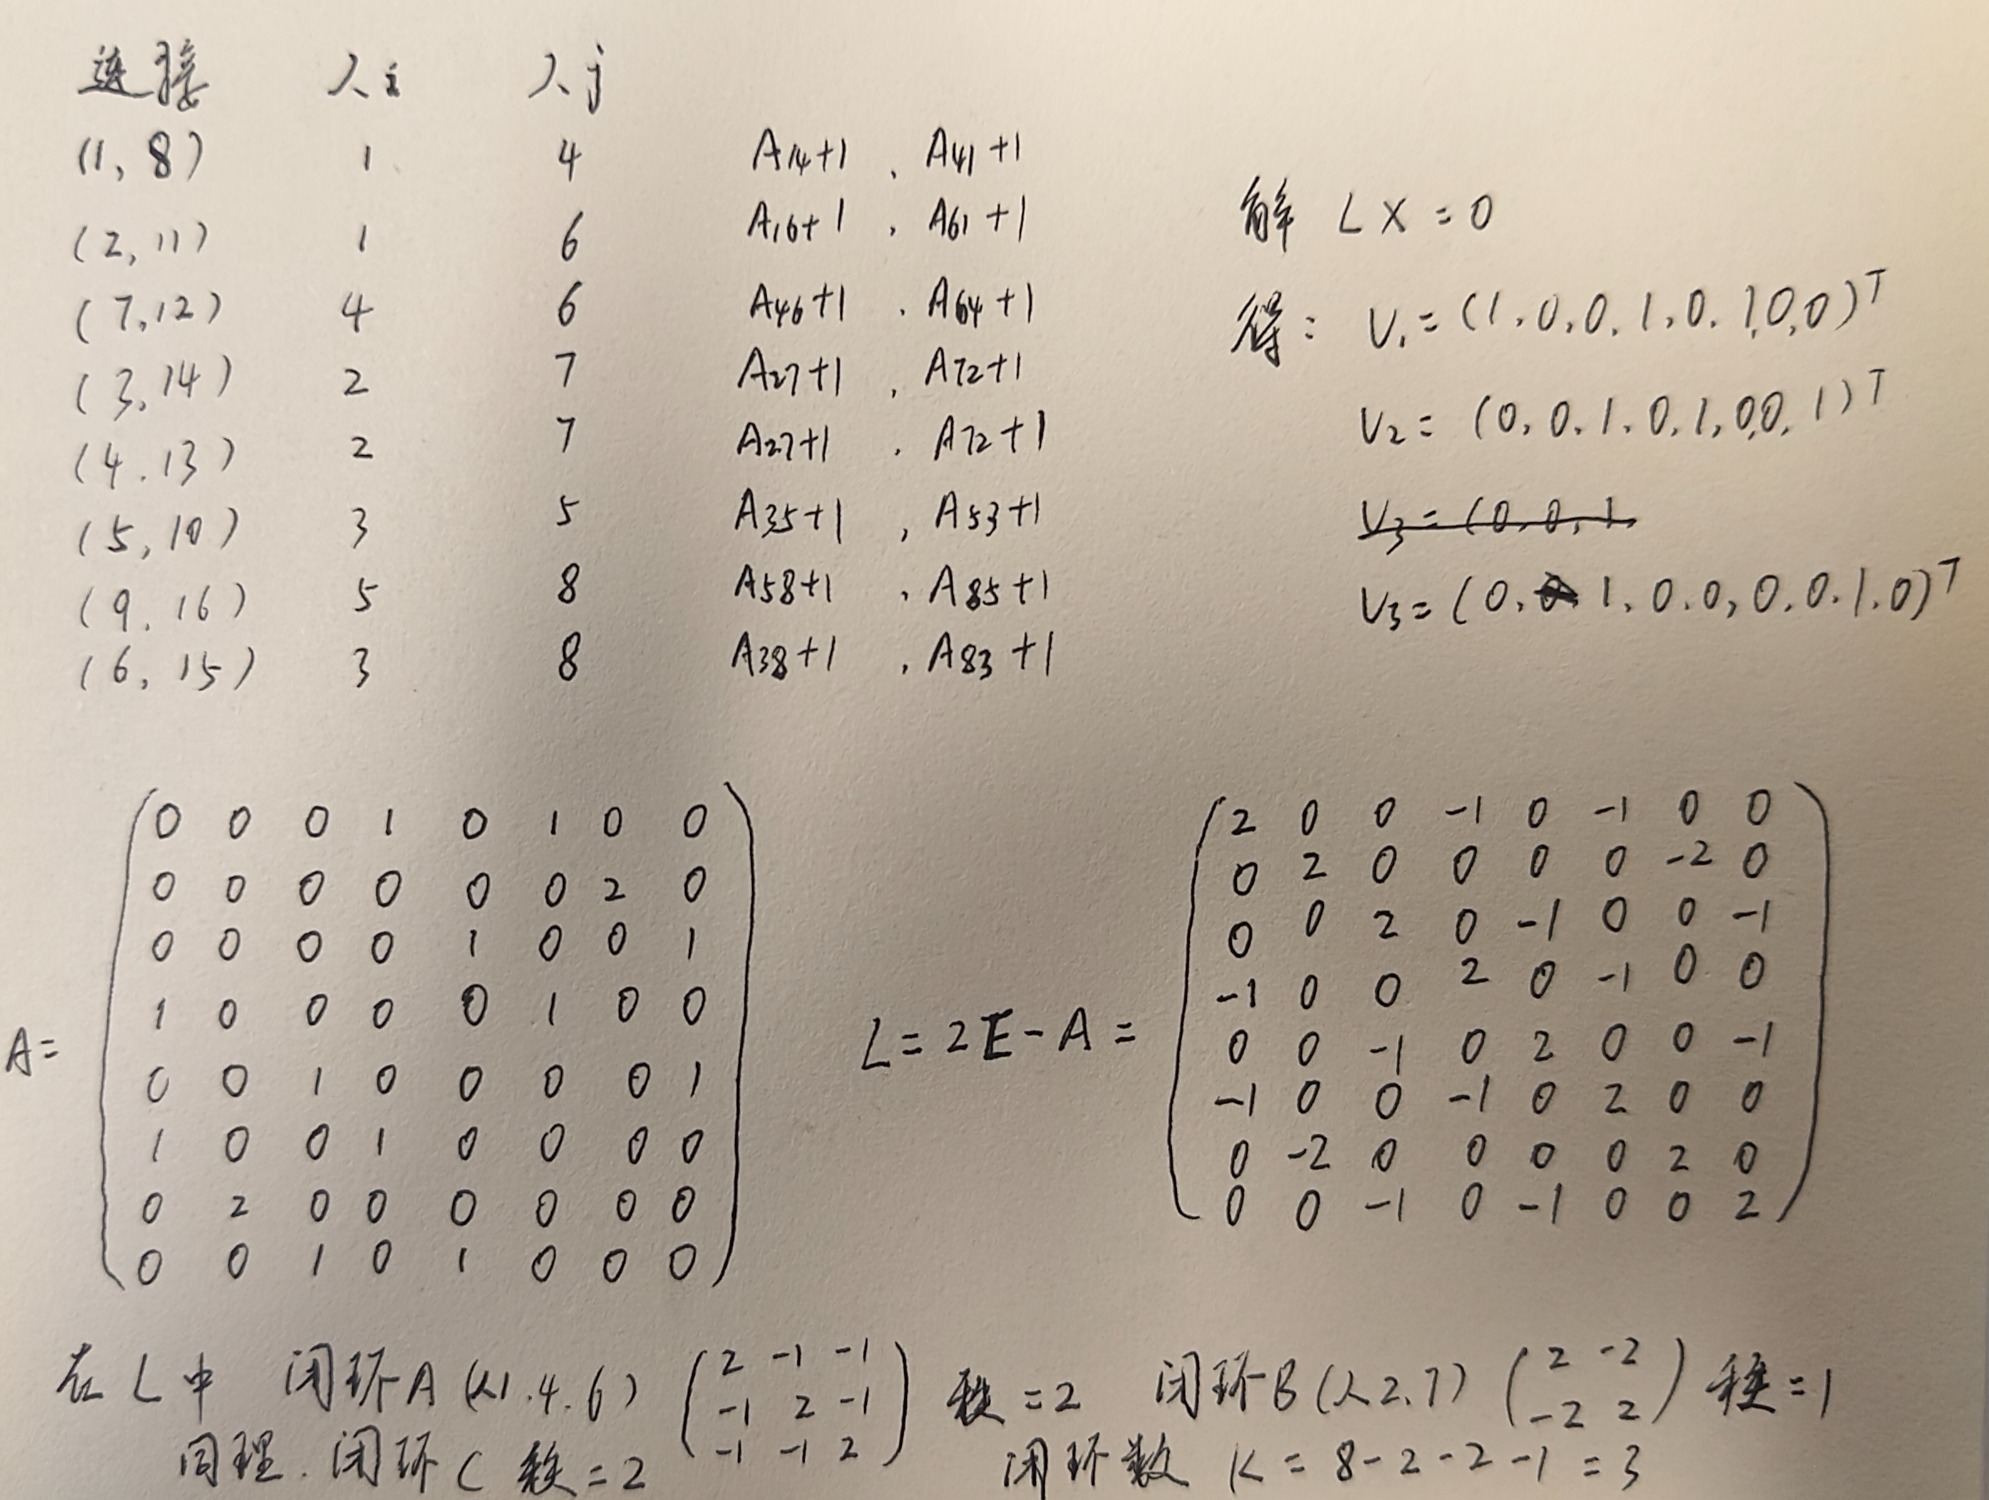 连接 人i 人j
(1, 8) 1 4 A14+1 , A41+1
(2, 11) 1 6 A16+1 , A61+1
(7, 12) 4 6 A46+1 , A64+1
(3, 14) 2 7 A27+1 , A72+1
(4, 13) 2 7 A27+1 , A72+1
(5, 10) 3 5 A35+1 , A53+1
(9, 16) 5 8 A58+1 , A85+1
(6, 15) 3 8 A38+1 , A83+1
解 LX=0
得: V₁=(1,0,0,1,0,1,0,0)ᵀ
V₂=(0,0,1,0,1,0,0,1)ᵀ
V₃=(0,0,1,
V₃=(0,1,0,0,0,0,1,0)ᵀ
A=
0 0 0 1 0 1 0 0
0 0 0 0 0 0 2 0
0 0 0 0 1 0 0 1
1 0 0 0 0 1 0 0
0 0 1 0 0 0 0 1
1 0 0 1 0 0 0 0
0 2 0 0 0 0 0 0
0 0 1 0 1 0 0 0
L=2E-A=
2 0 0 -1 0 -1 0 0
0 2 0 0 0 0 -2 0
0 0 2 0 -1 0 0 -1
-1 0 0 2 0 -1 0 0
0 0 -1 0 2 0 0 -1
-1 0 0 -1 0 2 0 0
0 -2 0 0 0 0 2 0
0 0 -1 0 -1 0 0 2
在L中 闭环A(人1.4.6)
2 -1 -1
-1 2 -1
-1 -1 2
秩=2 闭环B(人2.7)
2 -2
-2 2
秩=1
同理.闭环C 秩=2 闭环数 K=8-2-2-1=3